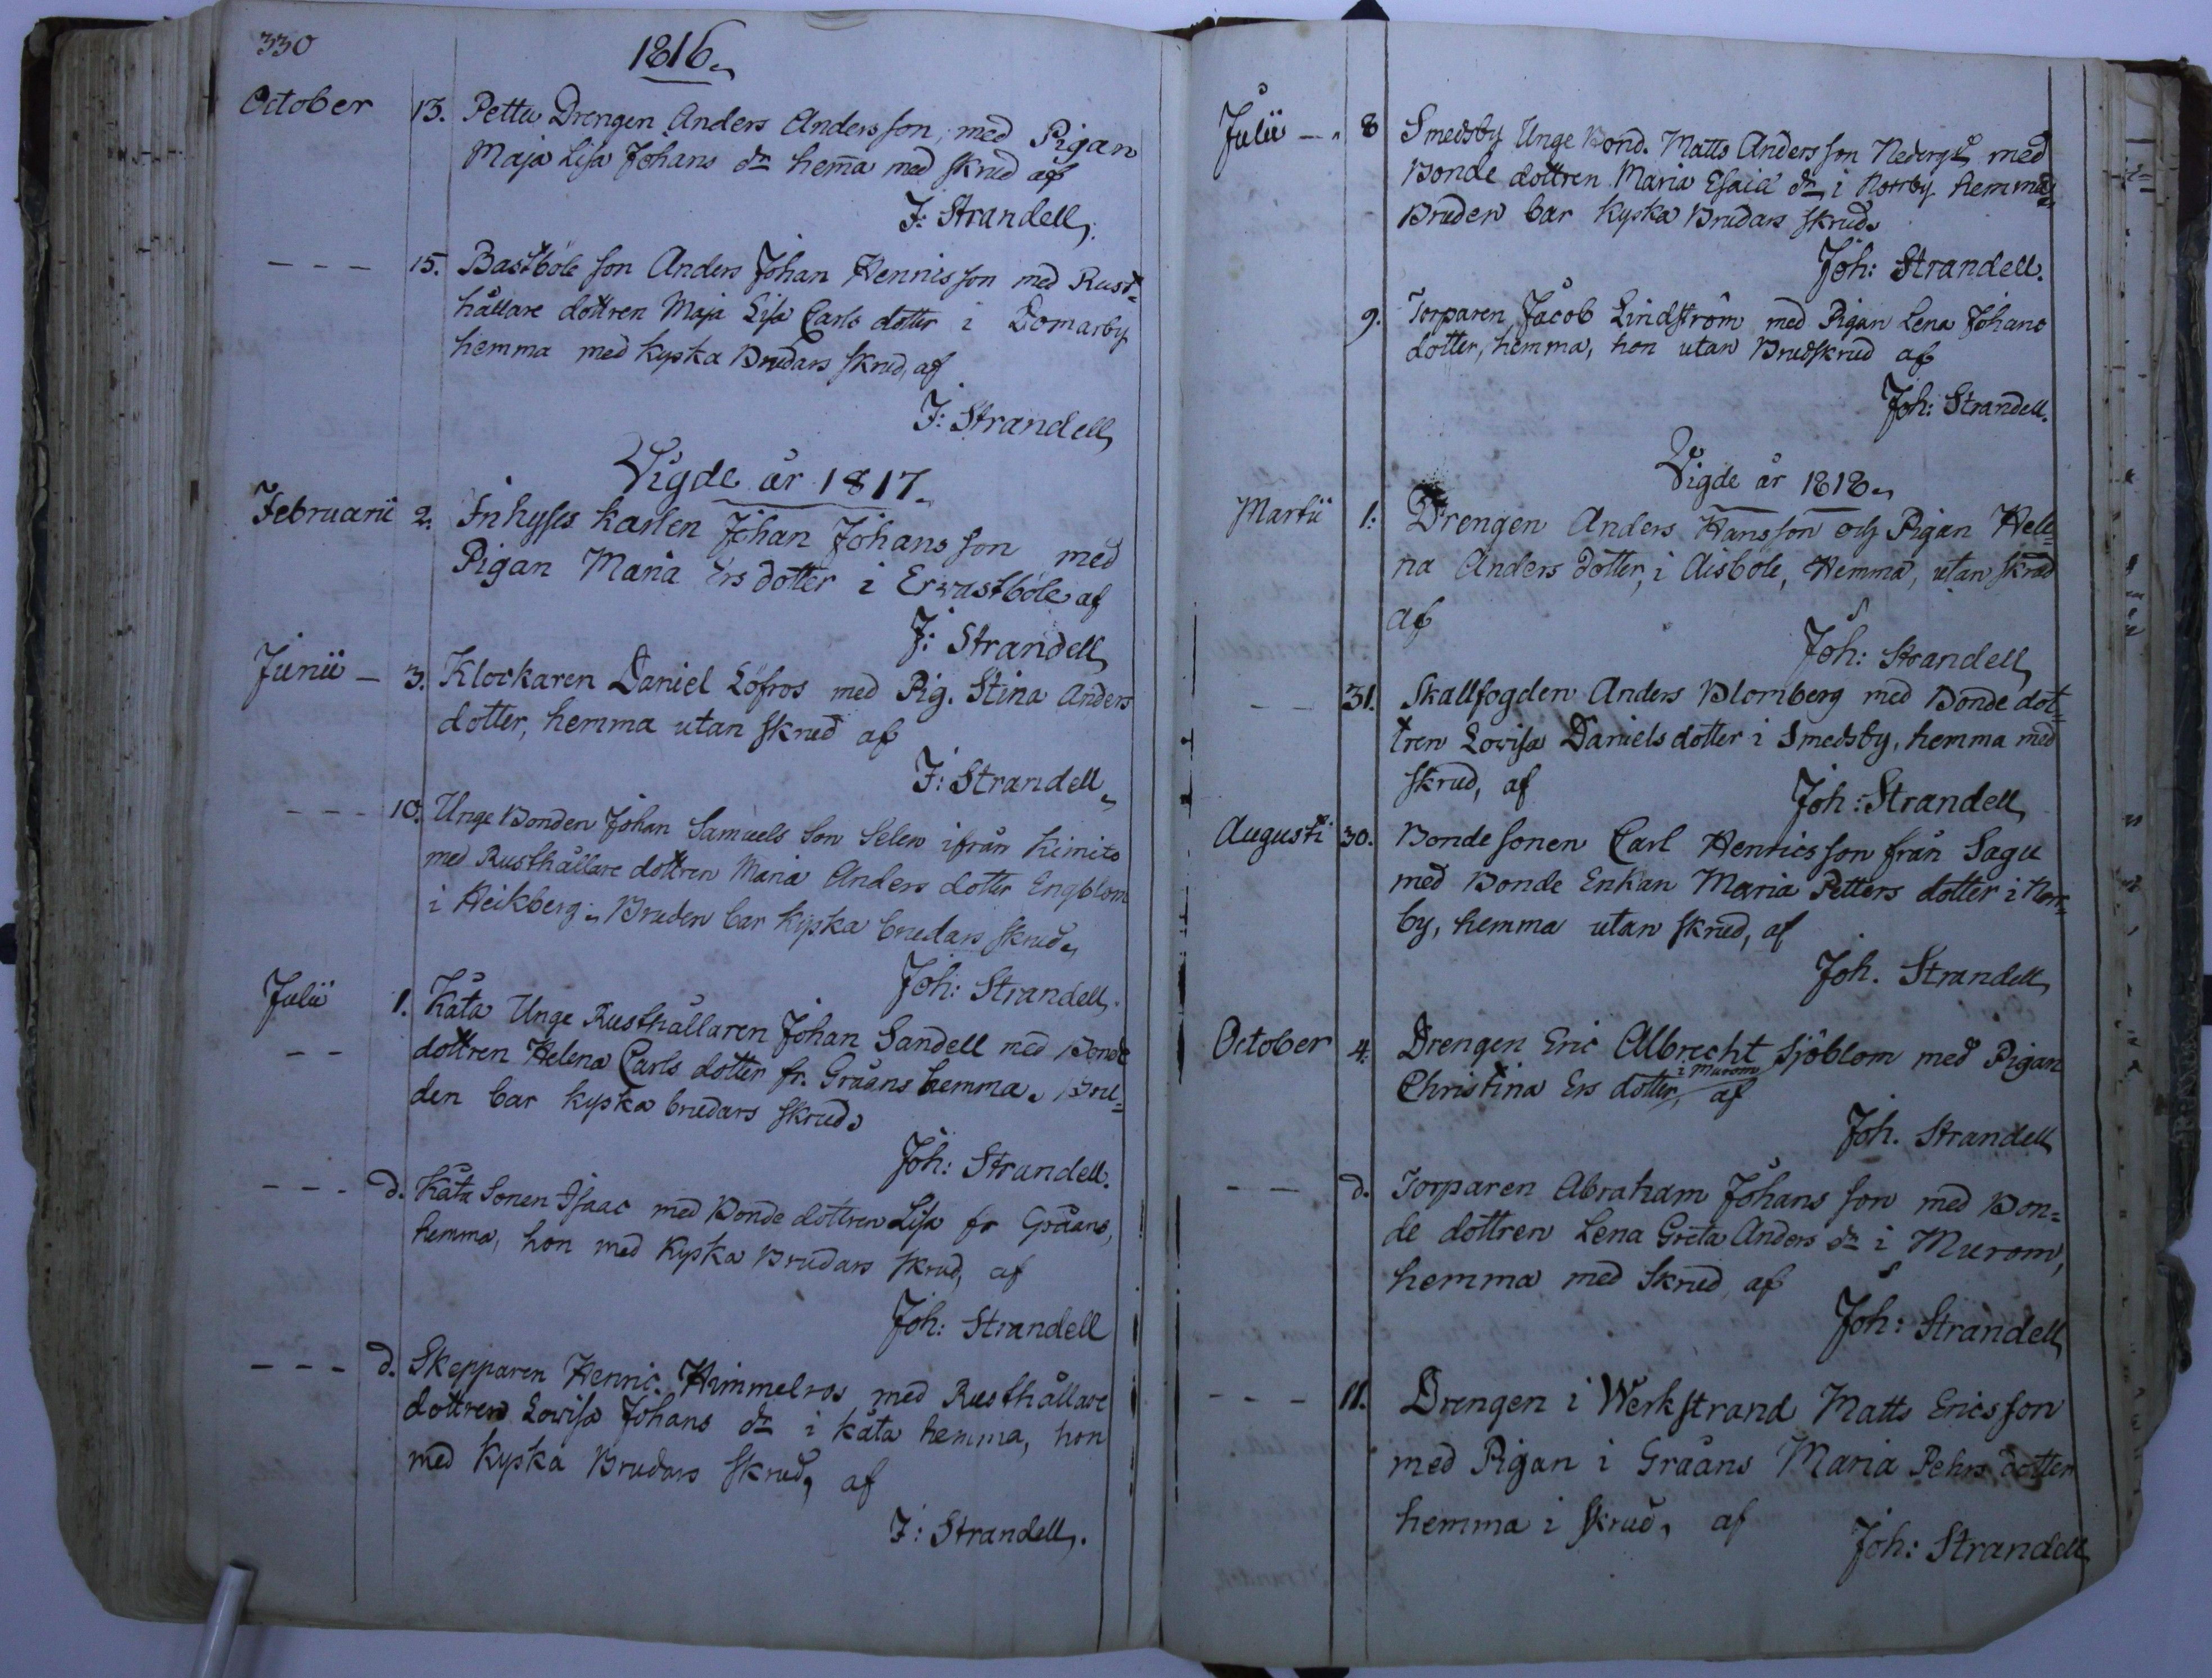 330
1816.
October 13. Pettu Drengen Anders Andersson, med Pigan
Maja Lisa Johans dr hem̅a med skrud af
J: Strandell.
- - - 15. Bastböle son Anders Johan Hennisson med Rust=
hållare dottren Maja Lisa Carls dotter i Domarby
hemma med kyska Brudars skrud, af
J: Strandell
Vigde år 1817.
Februarii 2. Inhyses karlen Johan Johansson med
Pigan Maria Ers dotter i Erwastböle af
J: Strandell
Junii - 3. Klockaren Daniel Löfros med Pig. Stina Anders
dotter, hemma utan skrud af
J: Strandell.
- - - 10. Unge Bonden Johan Samuels Son Selen ifrån Kimito
med Rusthållare dottren Maria Anders dotter Engblom
i Heikberg. Bruden bar kyska brudars skrud.
Joh: Strandell.
Julii 1. Kåta Unge Rusthållaren Johan Sandell med Bonde
- - dottren Helena Carls dotter fr. Gråäns hemma. Bru=
den bar kyska brudars skrud.
Joh: Strandell.
- - - d. Kåta Sonen Isaac med Bonde dottren Lisa fr Gråäns,
hemma, hon med Kyska Brudars skrud, af
Joh: Strandell
- - - d. Skepparen Henric Himmelros med Rusthållare
dottren Lovisa Johans dr i Kåta hemma, hon
med Kyska Brudars Skrud, af
J: Strandell.
Julii - 8 Smedsby Unge Bond. Matts Andersson Nederg. med
Bonde dottren Maria Esaiæ dr i Norrby hemma
Bruden bar Kyska Brudars skrud.
Joh: Strandell.
9. Torparen Jacob Lindström med Pigan Lena Johans
dotter, hemma, hon utan Brudskrud af
Joh: Strandell.
Vigde år 1818.
Martii 1: Drengen Anders Hansson och Pigan Hele=
na Anders dotter, i Aisböle, Hemma, utan skrud
af
Joh: Strandell
- - 31. Skallfogden Anders Blomberg med Bonde dot=
tren Lovisa Daniels dotter i Smedsby, hemma med
skrud, af
Joh: Strandell
Augusti 30. Bonde sonen Carl Henricsson från Sagu
med Bonde Enkan Maria Petters dotter i Norr=
by, hemma utan skrud, af
Joh. Strandell
October 4. Drengen Eric Albrecht Sjöblom med Pigan
Christina Ers dotter, i Murom af
Joh. Strandell
- - d. Torparen Abraham Johans son med Bon=
de dottren Lena Greta Anders dr i Murom,
hemma med Skrud af
Joh: Strandell
- - - 11. Drengen i Werkstrand Matts Ericsson
med Pigan i Gråäns Maria Pehrs dotter
hemma i skrud, af
Joh: Strandell